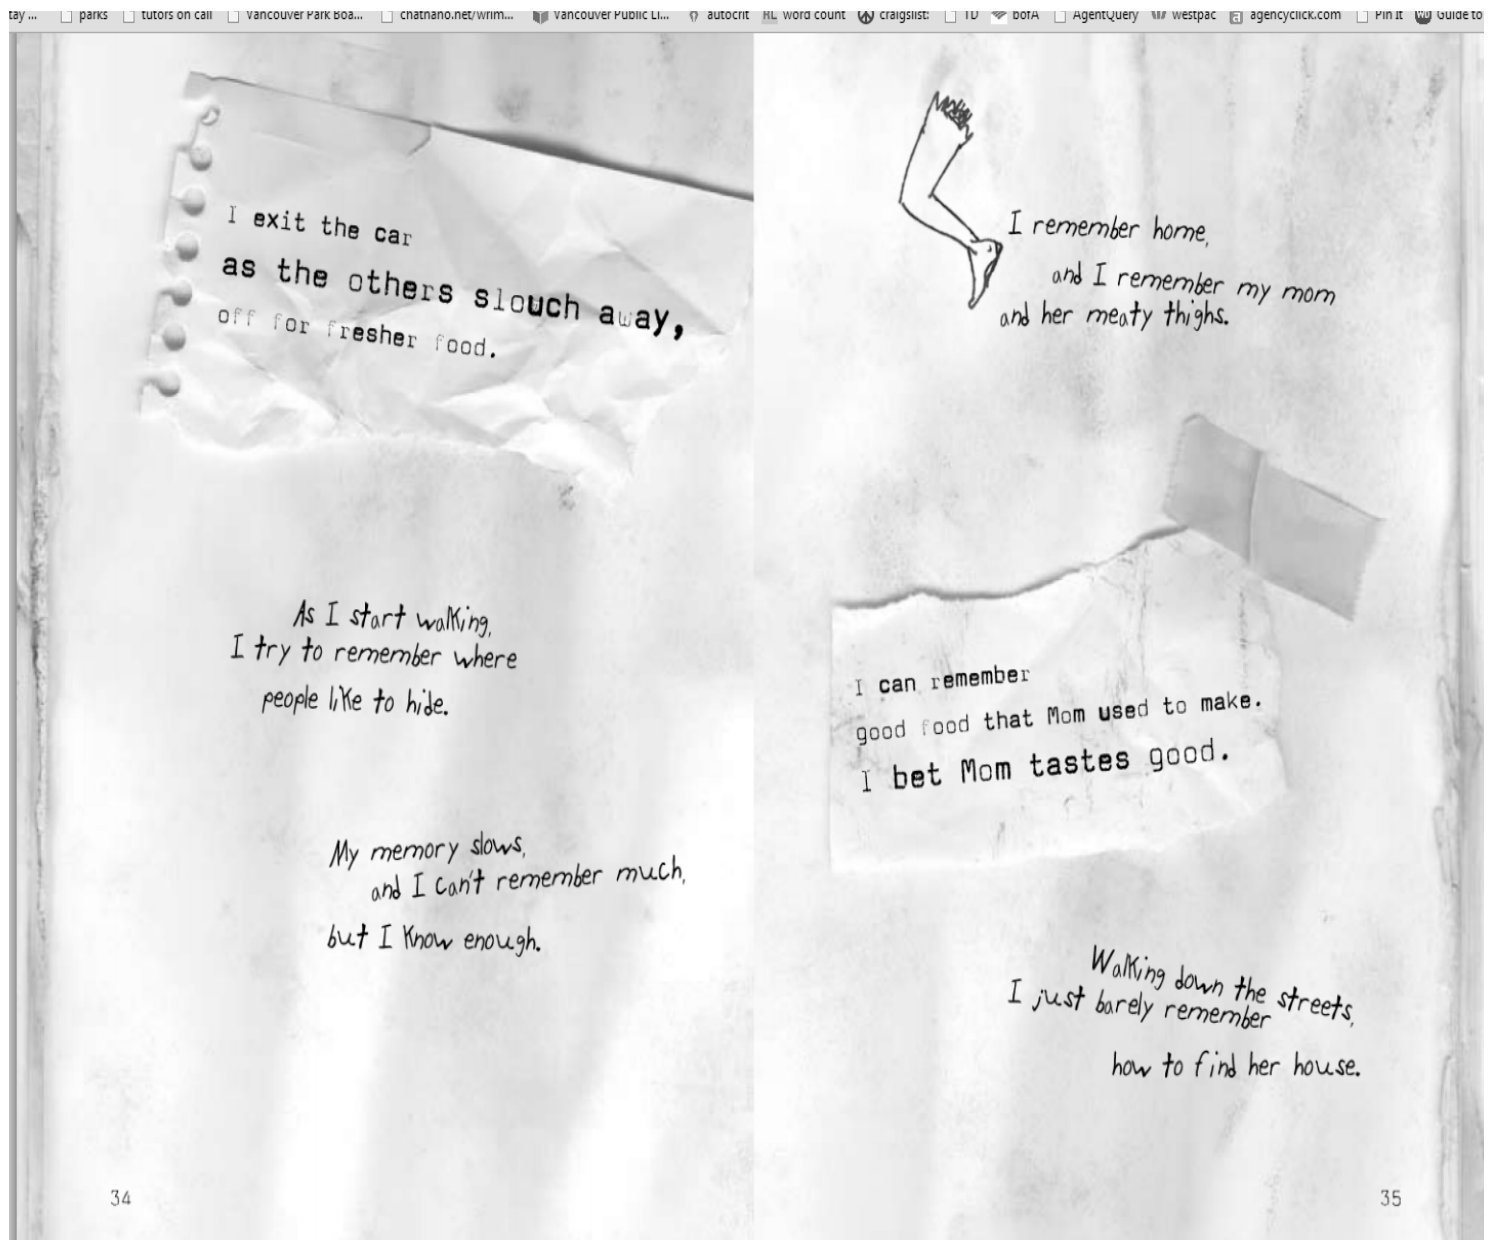 tay ... parks tutors on call Vancouver Park Boa... chatnano.net/wrim... Vancouver Public Li... autocrit HL word count craigslist: TD bofA AgentQuery westpac a agencyclick.com Pin It Guide to
I exit the car
as the others slouch away,
off for fresher food.
As I start walking,
I try to remember where
people like to hide.
My memory slows,
and I can't remember much,
but I know enough.
34
I remember home,
and I remember my mom
and her meaty thighs.
I can remember
good food that Mom used to make.
I bet Mom tastes good.
Walking down the streets,
I just barely remember
how to find her house.
35